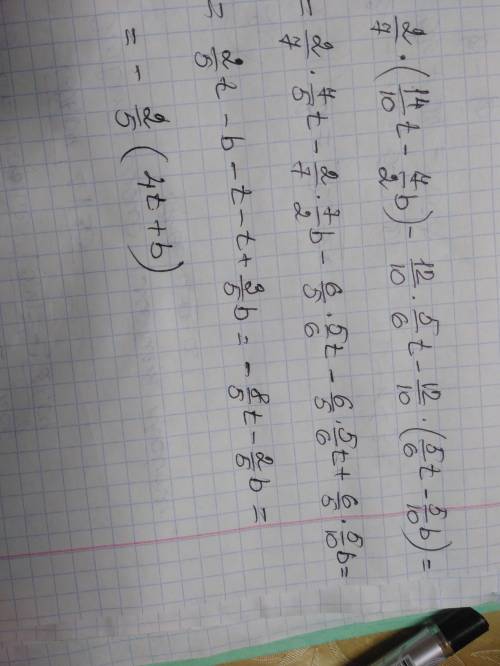 2/7 · (14/10 t - 7/2 b) - 12/10 · 5/6 t - 12/10 · (5/6 t - 5/10 b) =
= 2/7 · 7/5 t - 2/7 · 7/2 b - 6/5 · 5/6 t - 6/5 · 5/6 t + 6/5 · 5/10 b =
= 2/5 t - b - t - t + 3/5 b = - 8/5 t - 2/5 b =
= - 2/5 (4t + b)